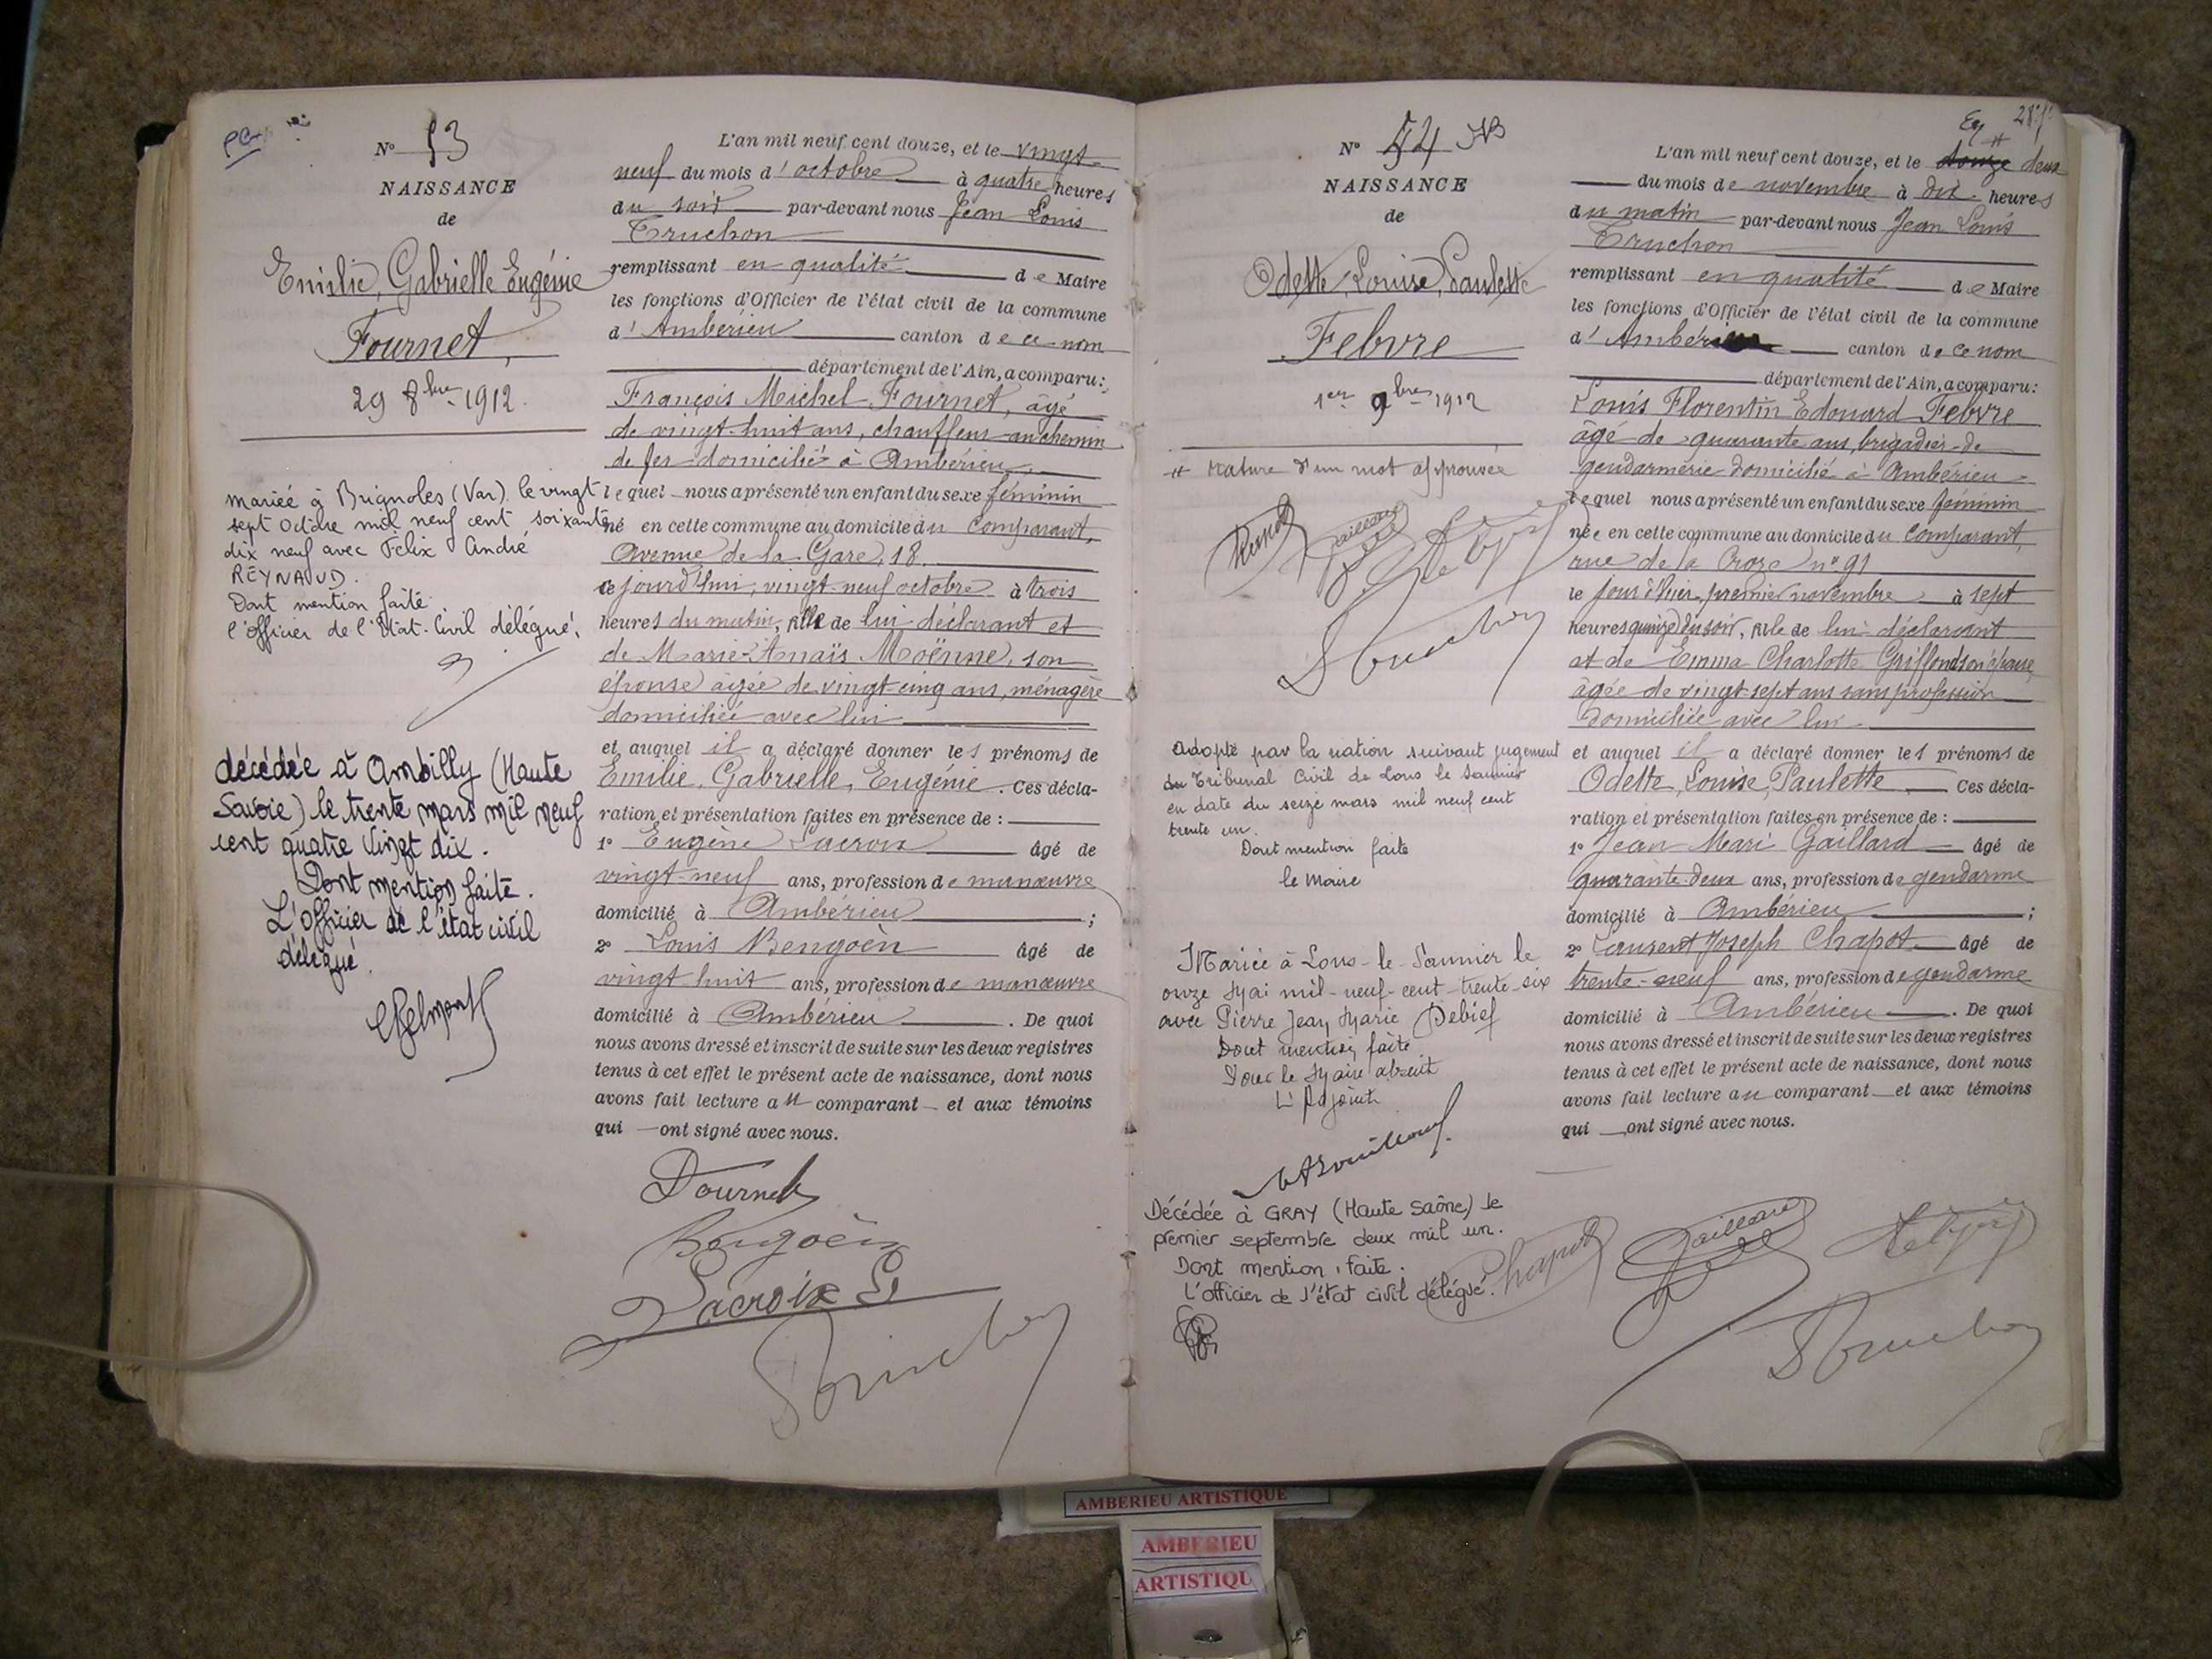 N° 53
NAISSANCE
de
Emilie, Gabrielle Eugénie
Fournet,
29 8bre 1912.
mariée à Brignoles (Var) le vingt
sept Octobre mil neuf cent soixante
dix neuf avec Félix André
REYNAUD.
Dont mention faite
l'officier de l'Etat-Civil délégué,
décédée à Ambilly (Haute
Savoie) le trente mars mil neuf
cent quatre vingt dix.
Dont mention faite.
L'Officier de l'état civil
délégué.
L'an mil neuf cent douze, et le vingt
neuf du mois d'octobre à quatre heures
du soir par-devant nous Jean Louis
Truchon
remplissant en qualité de Maire
les fonctions d'Officier de l'état civil de la commune
d'Ambérieu canton de ce nom
département de l'Ain, a comparu:
François Michel Fournet, âgé
de vingt-huit ans, chauffeur au chemin
de fer domicilié à Ambérieu
lequel nous a présenté un enfant du sexe féminin
né en cette commune au domicile du comparant,
Avenue de la Gare, 18
ce jourd'hui, vingt-neuf octobre à trois
heures du matin, fille de lui déclarant et
de Marie-Anaïs Moënne, son
épouse âgée de vingt-cinq ans, ménagère
domiciliée avec lui
et auquel il a déclaré donner les prénoms de
Emilie, Gabrielle, Eugénie. Ces décla-
ration et présentation faites en présence de :
1° Eugène Lacroix âgé de
vingt-neuf ans, profession de manœuvre
domicilié à Ambérieu ;
2° Louis Bengoèn âgé de
vingt huit ans, profession de manœuvre
domicilié à Ambérieu. De quoi
nous avons dressé et inscrit de suite sur les deux registres
tenus à cet effet le présent acte de naissance, dont nous
avons fait lecture au comparant et aux témoins
qui ont signé avec nous.
Fournet
Bengoèn
Lacroix E
Truchon
28
N° 54
NAISSANCE
de
Odette, Louise, Paulette
Febvre
1er 9bre 1912
# Rature d'un mot approuvée
Chapot Gaillard Febvre
Truchon
Adopté par la nation suivant jugement
du Tribunal Civil de Lons le Saunier
en date du seize mars mil neuf cent
trente un.
Dont mention faite
le Maire
Mariée à Lons-le-Saunier le
onze Mai mil-neuf-cent-trente-six
avec Pierre Jean Marie Debief
Dont mention faite
Pour le Maire absent
L'Adjoint
Décédée à GRAY (Haute Saône) le
premier septembre deux mil un.
Dont mention faite.
L'officier de l'état civil délégué.
L'an mil neuf cent douze, et le douze # deux
du mois de novembre à dix heures
du matin par-devant nous Jean Louis
Truchon
remplissant en qualité de Maire
les fonctions d'Officier de l'état civil de la commune
d'Ambérieu canton de ce nom
département de l'Ain, a comparu:
Louis Florentin Edouard Febvre
âgé de quarante ans, brigadier de
gendarmerie domicilié à Ambérieu
lequel nous a présenté un enfant du sexe féminin
née en cette commune au domicile du comparant,
rue de la Croze n° 91
le jour d'hier, premier novembre à sept
heures quinze du soir, fille de lui déclarant
et de Emma Charlotte Griffond son épouse,
âgée de vingt-sept ans sans profession
domiciliée avec lui
et auquel il a déclaré donner les prénoms de
Odette, Louise, Paulette. Ces décla-
ration et présentation faites en présence de :
1° Jean Mari Gaillard âgé de
quarante-deux ans, profession de gendarme
domicilié à Ambérieu ;
2° Laurent Joseph Chapot âgé de
trente-neuf ans, profession de gendarme
domicilié à Ambérieu. De quoi
nous avons dressé et inscrit de suite sur les deux registres
tenus à cet effet le présent acte de naissance, dont nous
avons fait lecture au comparant et aux témoins
qui ont signé avec nous.
Chapot Gaillard Febvre
Truchon
AMBERIEU ARTISTIQUE
AMBERIEU
ARTISTIQU